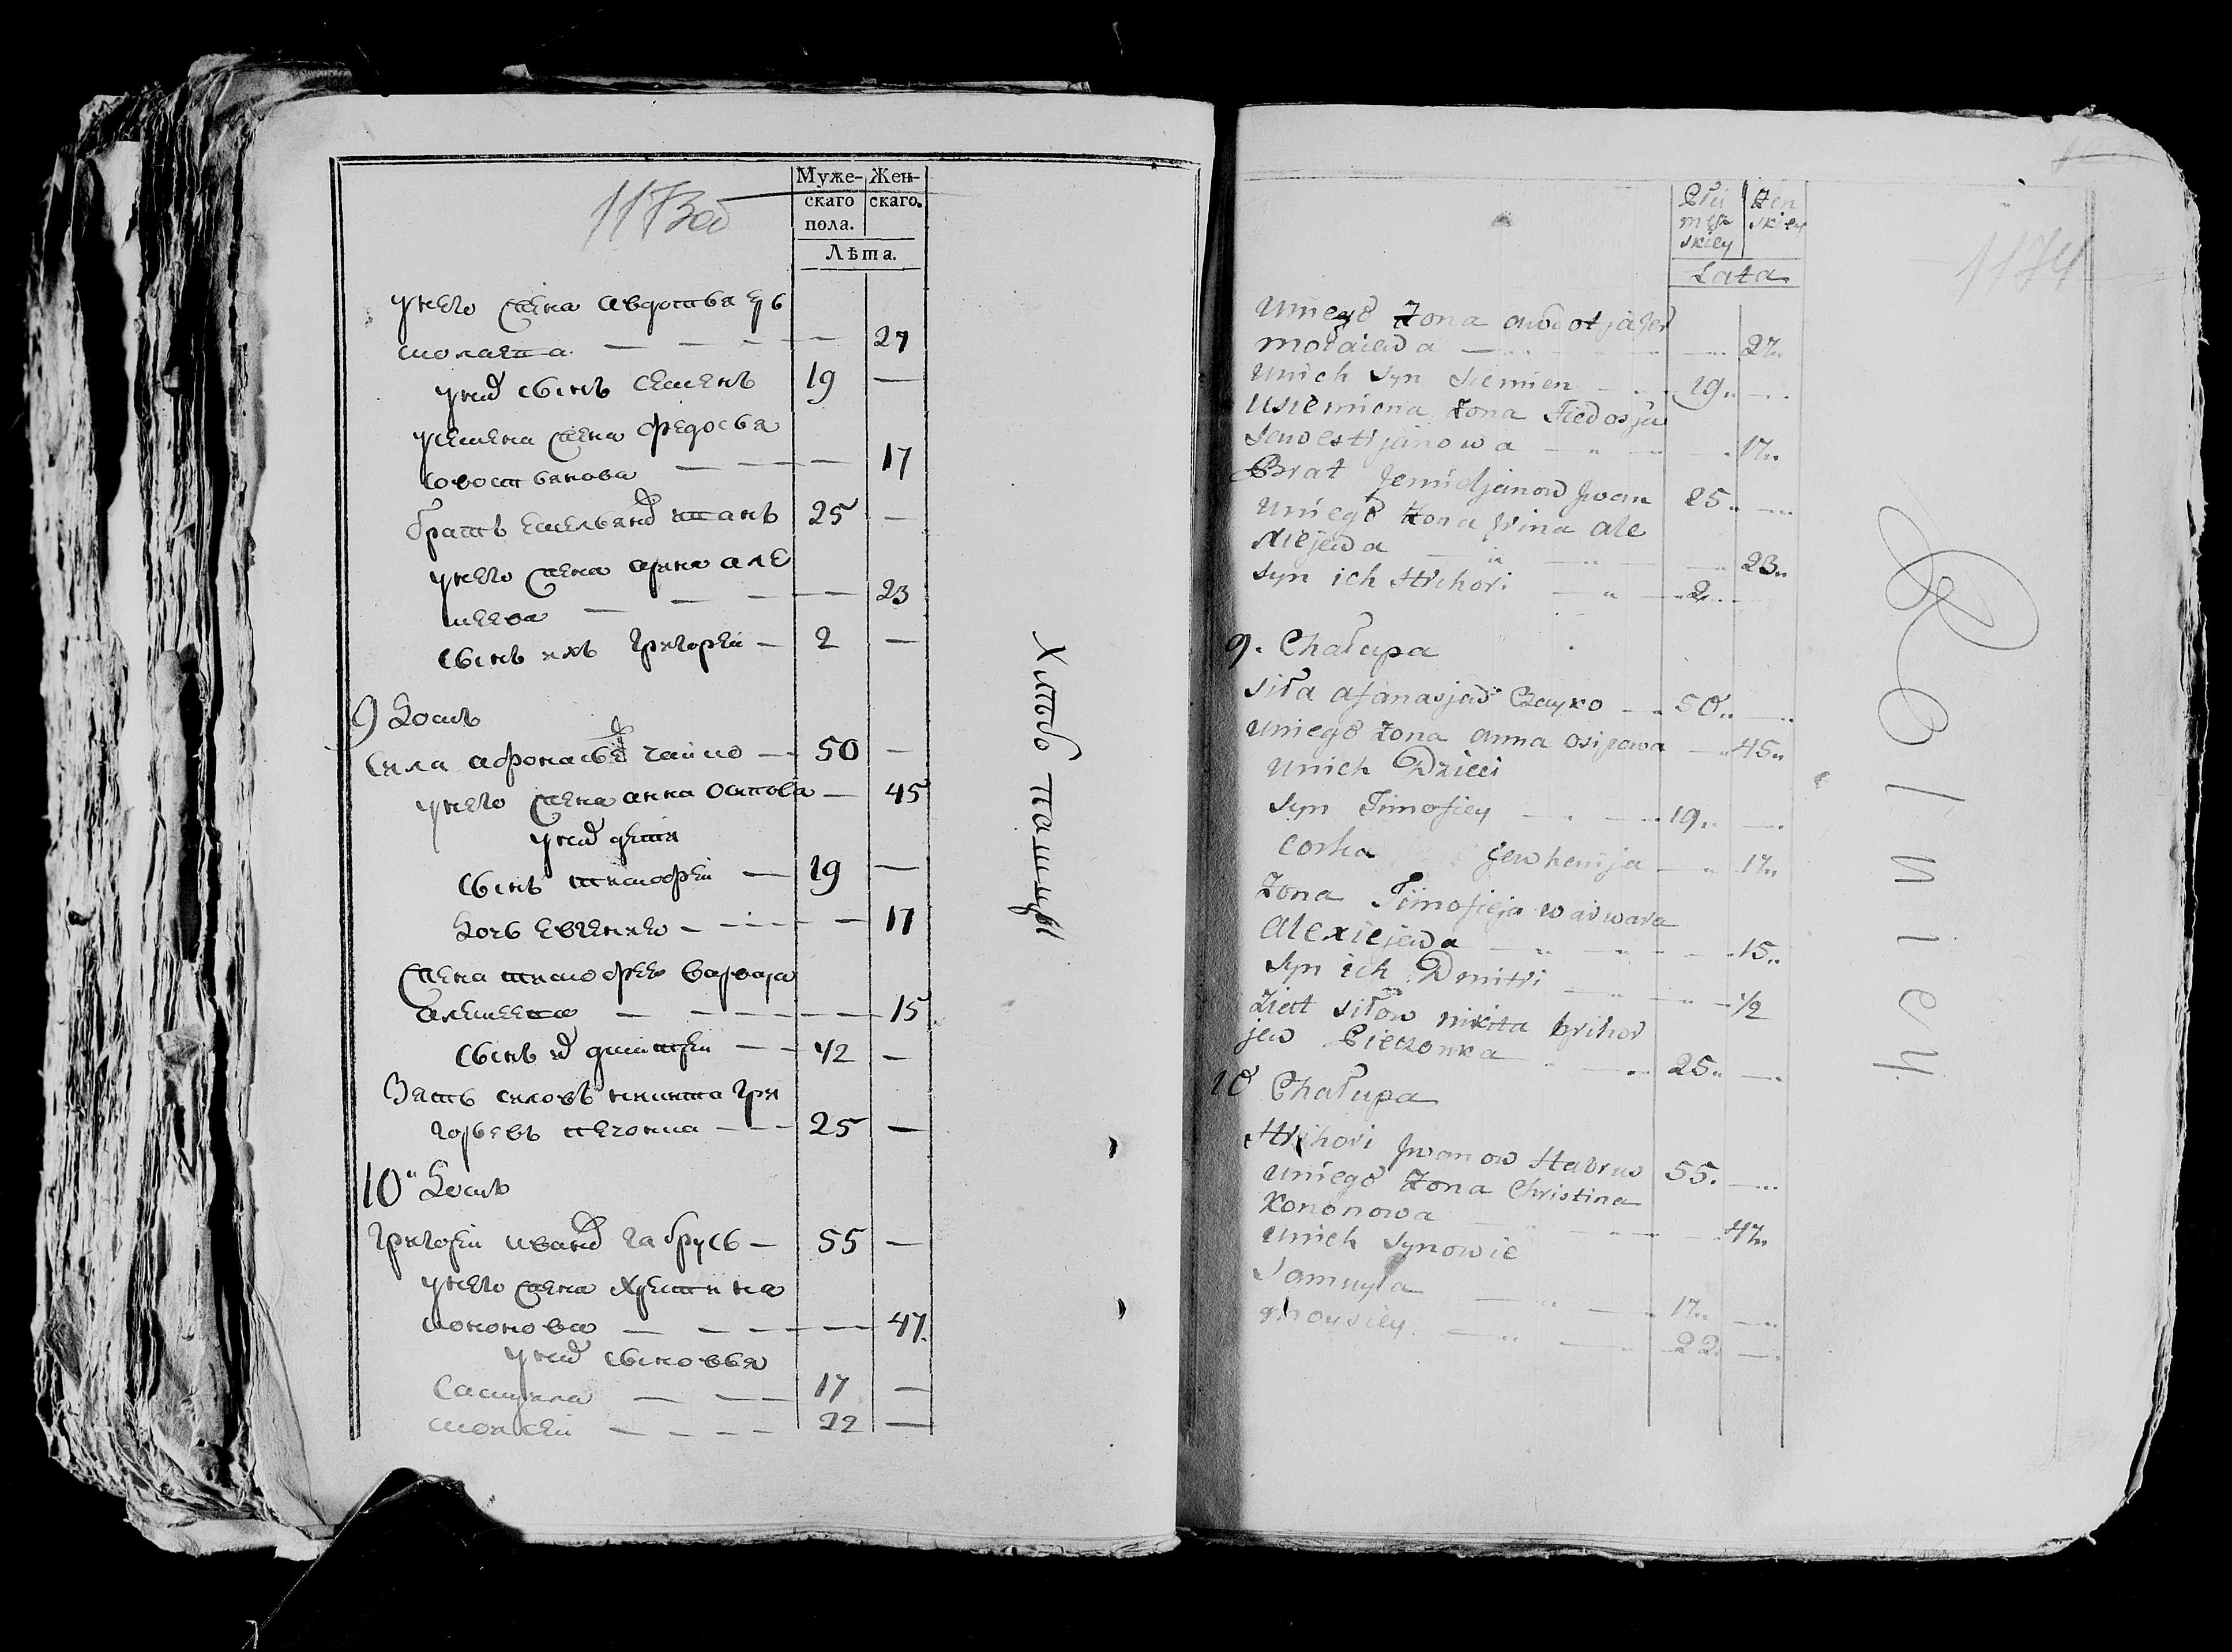 1173об
Муже- Жен-
скаго скаго.
пола.
Лѣта.
унего жена авдотья ер
молаева — — — — 27
уних сынъ семенъ 19 —
усемена жена федосья
совостьянова — — — 17
братъ емельянов иванъ 25 —
унего жена арина але
ѯеева — — — — 23
сынъ ихъ григорей — 2 —
9 Домъ
сила афонасьев чайко — 50 —
унего жена анна осипова — 45
уних дети
сынъ тимофей — 19 —
дочь евгения — — — — 17
жена тимофея варвара
алеѯеева — — — — — 15
сынъ их дмитрей — — 1/2 —
Зять силовъ никита гри
горьевъ печонка — — 25 —
10й Домъ
григорей иванов габрусь — 55 —
унего жена христина
кононова — — — — — 47.
уних сыновья
самуила — — — 17 —
моисей — — — — 22 —
хлѣбопашцы
1174
Płci Żen
męz skiey
skiey
Lata
Uniego Żona awdotja Jer
mołaiewa — — — 27„
Unich Syn Siemien — — 19„ —
Usiemiena żona Fiedosja
Sewestjanowa — — — 17„
Brat Jemieljanow Jwan 25„ —
Uniego Żona Irina ale
xiejewa — — — 23„
Syn ich Hrihori — — 2 —
9. Chałupa
Siła afanasjew Czayko — 50„ —
Uniego żona anna osipowa — 45„
Unich Dzieci
Syn Timofiey — — 19„ —
Corka Jewhenija — — 17„
Żona Timofieja warwara
Alexiejewa — — — 15„
Syn ich Dmitri — — — 1/2
Zięt siłow nikita hrihor
jew Pieczonka — — 25„ —
10 Chałupa
Hrihori Jwanow Habrus 55. —
Uniego Żona Christina
Kononowa — — — 47„
Unich Synowie
Samuyła — — — 17„ —
Moysiey — — — 22. —
Rolnicy